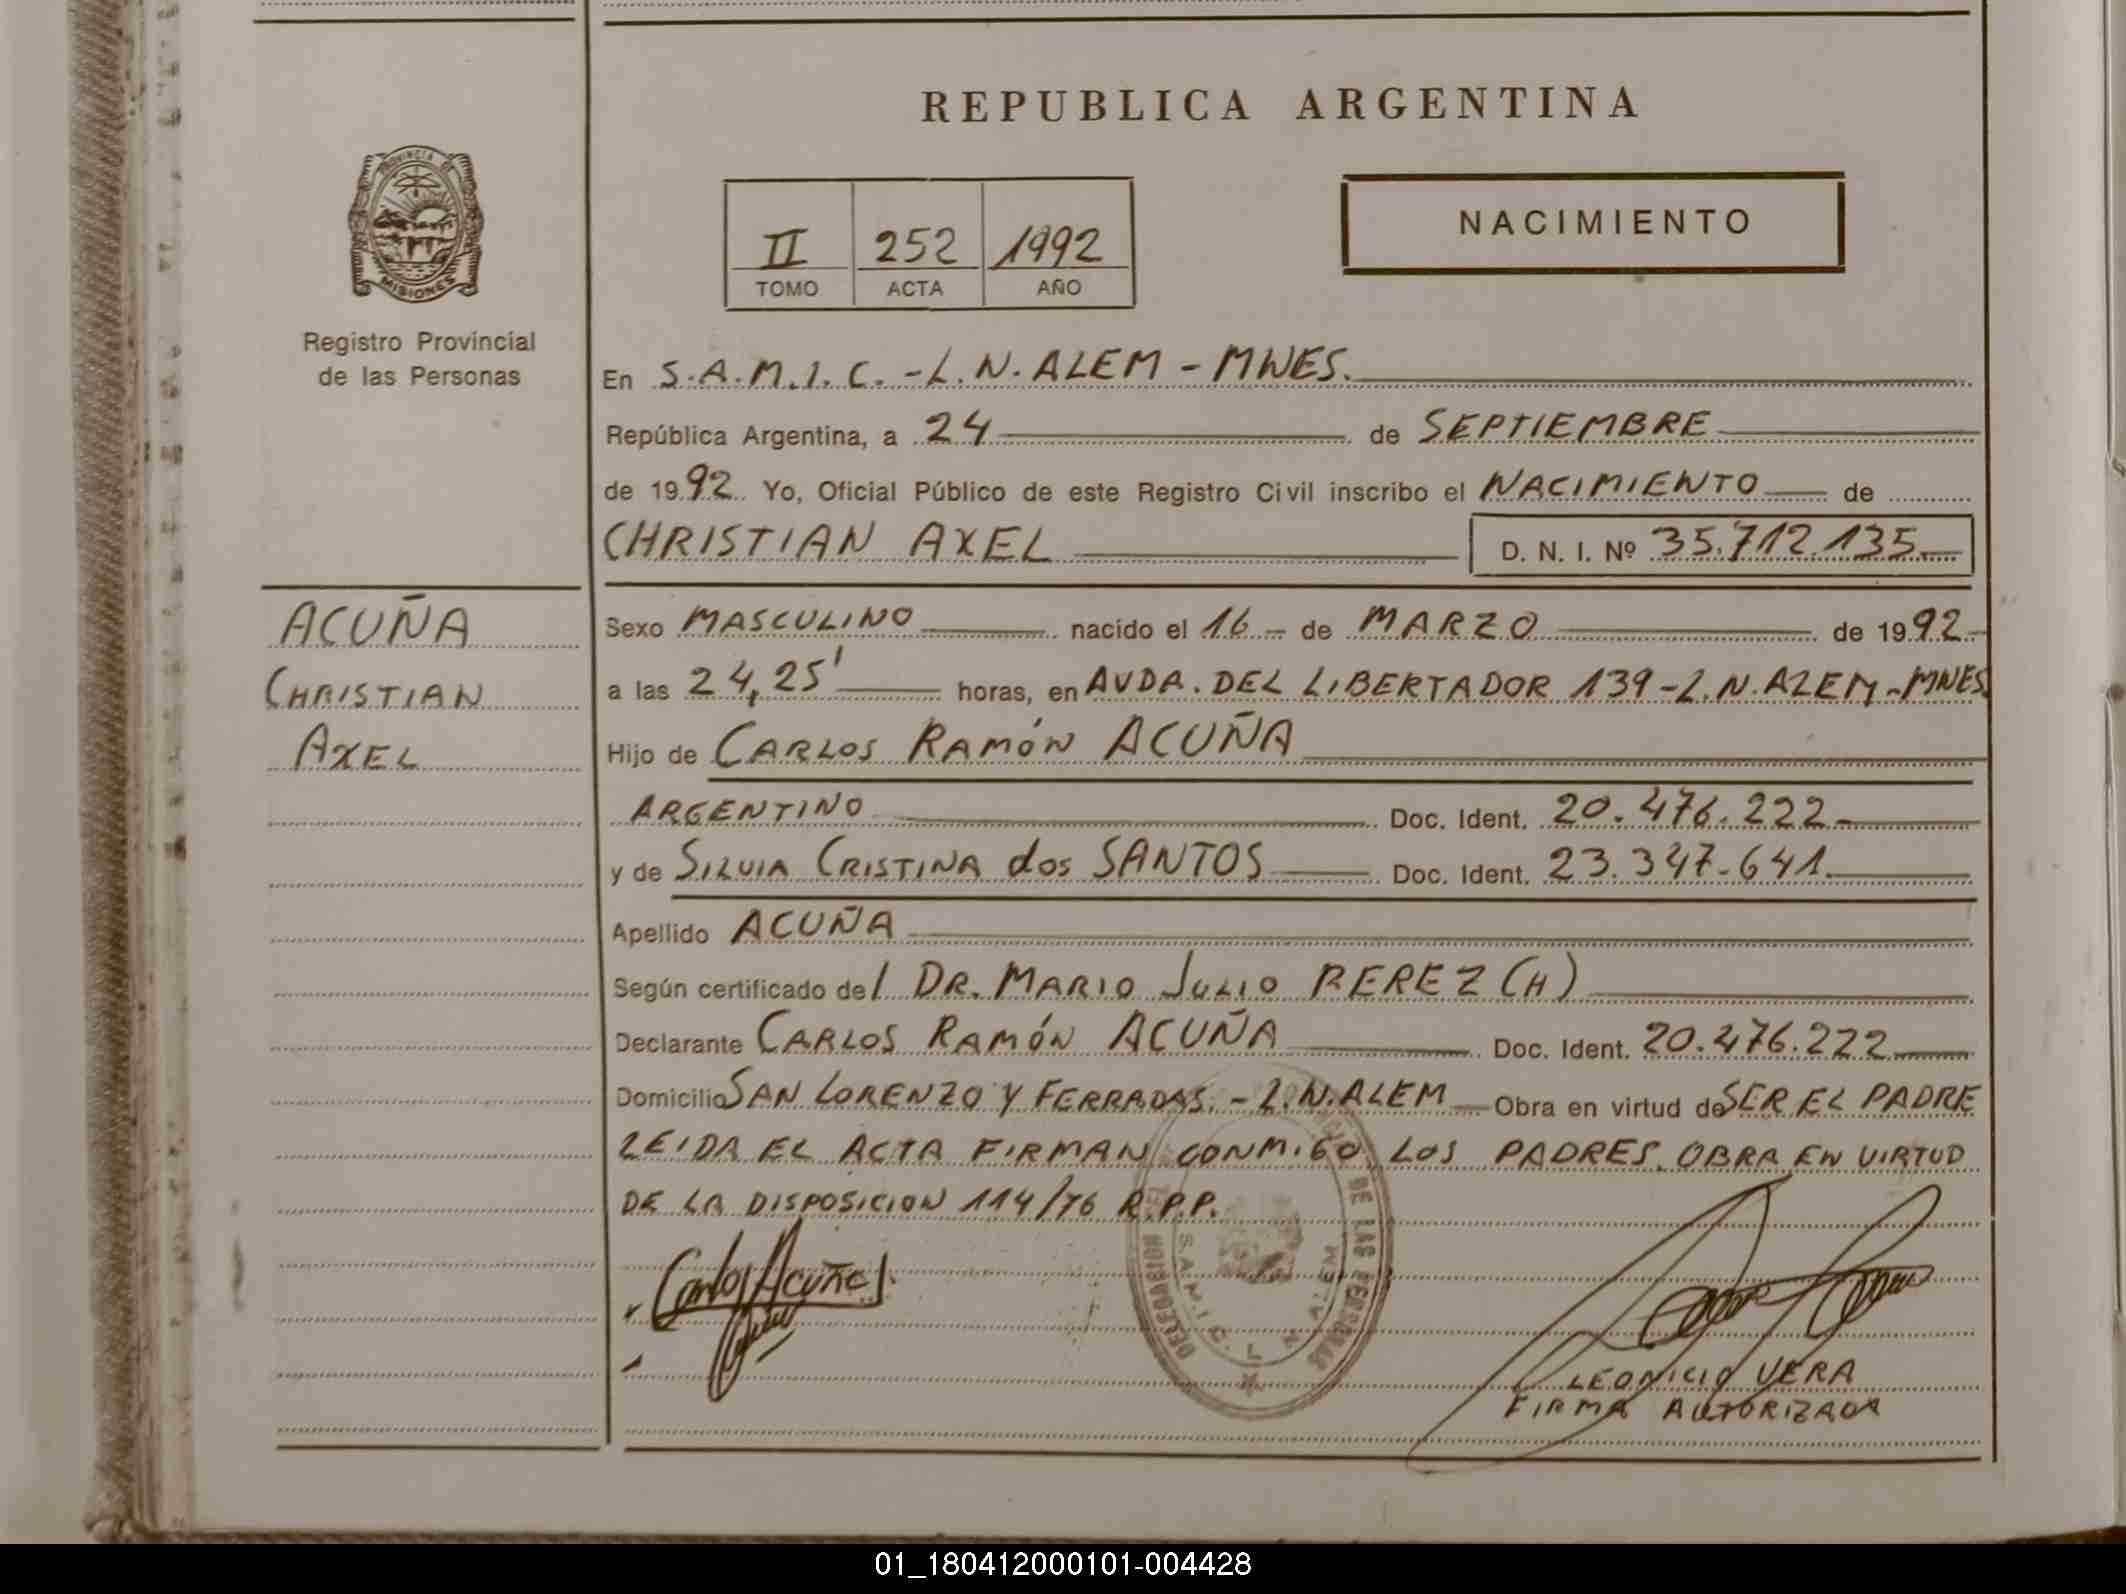 REPUBLICA ARGENTINA
PROVINCIA DE
MISIONES
Registro Provincial
de las Personas
NACIMIENTO
II 252 1992
TOMO ACTA AÑO
En S.A.M.I.C. - L. N. ALEM - MNES.
República Argentina, a 24 de SEPTIEMBRE
de 1992. Yo, Oficial Público de este Registro Civil inscribo el NACIMIENTO de
CHRISTIAN AXEL D. N. I. Nº 35.712.135
ACUÑA
CHRISTIAN
AXEL
Sexo MASCULINO nacido el 16 de MARZO de 1992
a las 24,25' horas, en AVDA. DEL LIBERTADOR 139 - L. N. ALEM - MNES
Hijo de CARLOS RAMÓN ACUÑA
ARGENTINO Doc. Ident. 20.476.222
y de SILVIA CRISTINA dos SANTOS Doc. Ident. 23.347.641
Apellido ACUÑA
Según certificado del DR. MARIO JULIO PEREZ (H)
Declarante CARLOS RAMÓN ACUÑA Doc. Ident. 20.476.222
Domicilio SAN LORENZO Y FERRADAS. - L. N. ALEM Obra en virtud de SER EL PADRE
LEIDA EL ACTA FIRMAN CONMIGO LOS PADRES. OBRA EN VIRTUD
DE LA DISPOSICION 114/76 R.P.P.
Carlos Acuña
DELEGACION DE LAS PERSONAS
S.A.M.I.C. L N ALEM
LEONICIO VERA
FIRMA AUTORIZADA
01_180412000101-004428